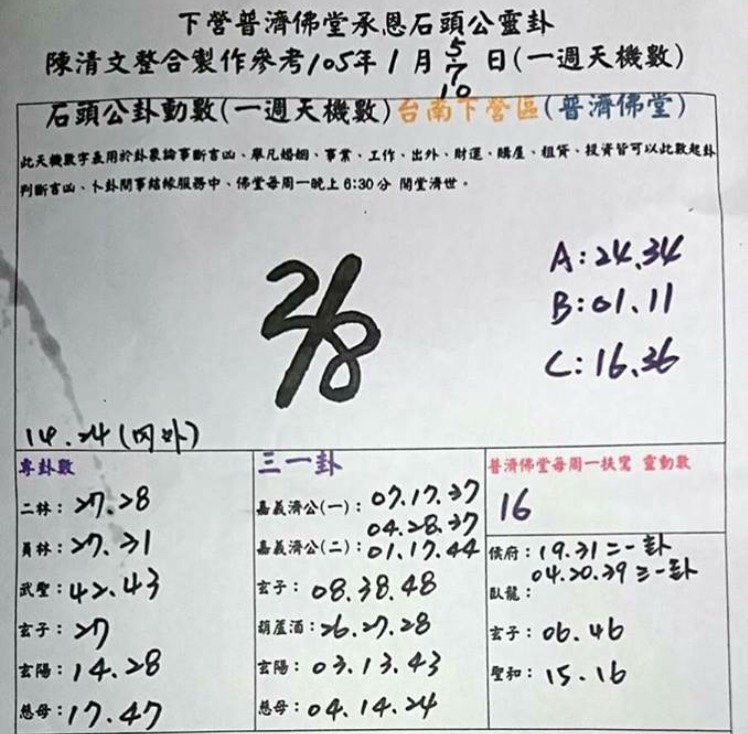 下營普濟佛堂承恩石頭公靈卦
陳清文整合製作參考105年1月5 7 10日(一週天機數)
石頭公卦動數(一週天機數)台南下營區(普濟佛堂)
此天機數字表用於卦象論事斷吉凶、舉凡婚姻、事業、工作、出外、財運、購屋、租賃、投資皆可以此數起卦
判斷吉凶、卜卦問事結緣服務中、佛堂每周一晚上6:30分 開堂濟世。
2/8
A:24.34
B:01.11
C:16.36
14.24(内外)
專卦數
二林:27.28
員林:27.31
武聖:42.43
玄子:27
玄陽:14.28
慈母:17.47
三一卦
嘉義濟公(一):07.17.37
04.28.37
嘉義濟公(二):01.17.44
玄子:08.38.48
葫蘆酒:26.27.28
玄陽:03.13.43
慈母:04.14.24
普濟佛堂每周一扶鸞 靈動數
16
侯府:19.31二一卦
04.20.39三一卦
臥龍:
玄子:06.46
聖和:15.16